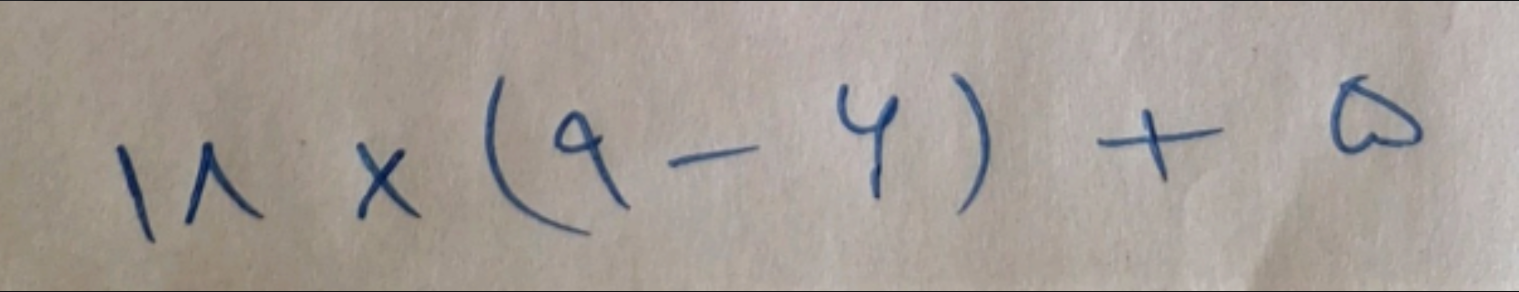 ۱۸ × (۹ - ۶) + ۵